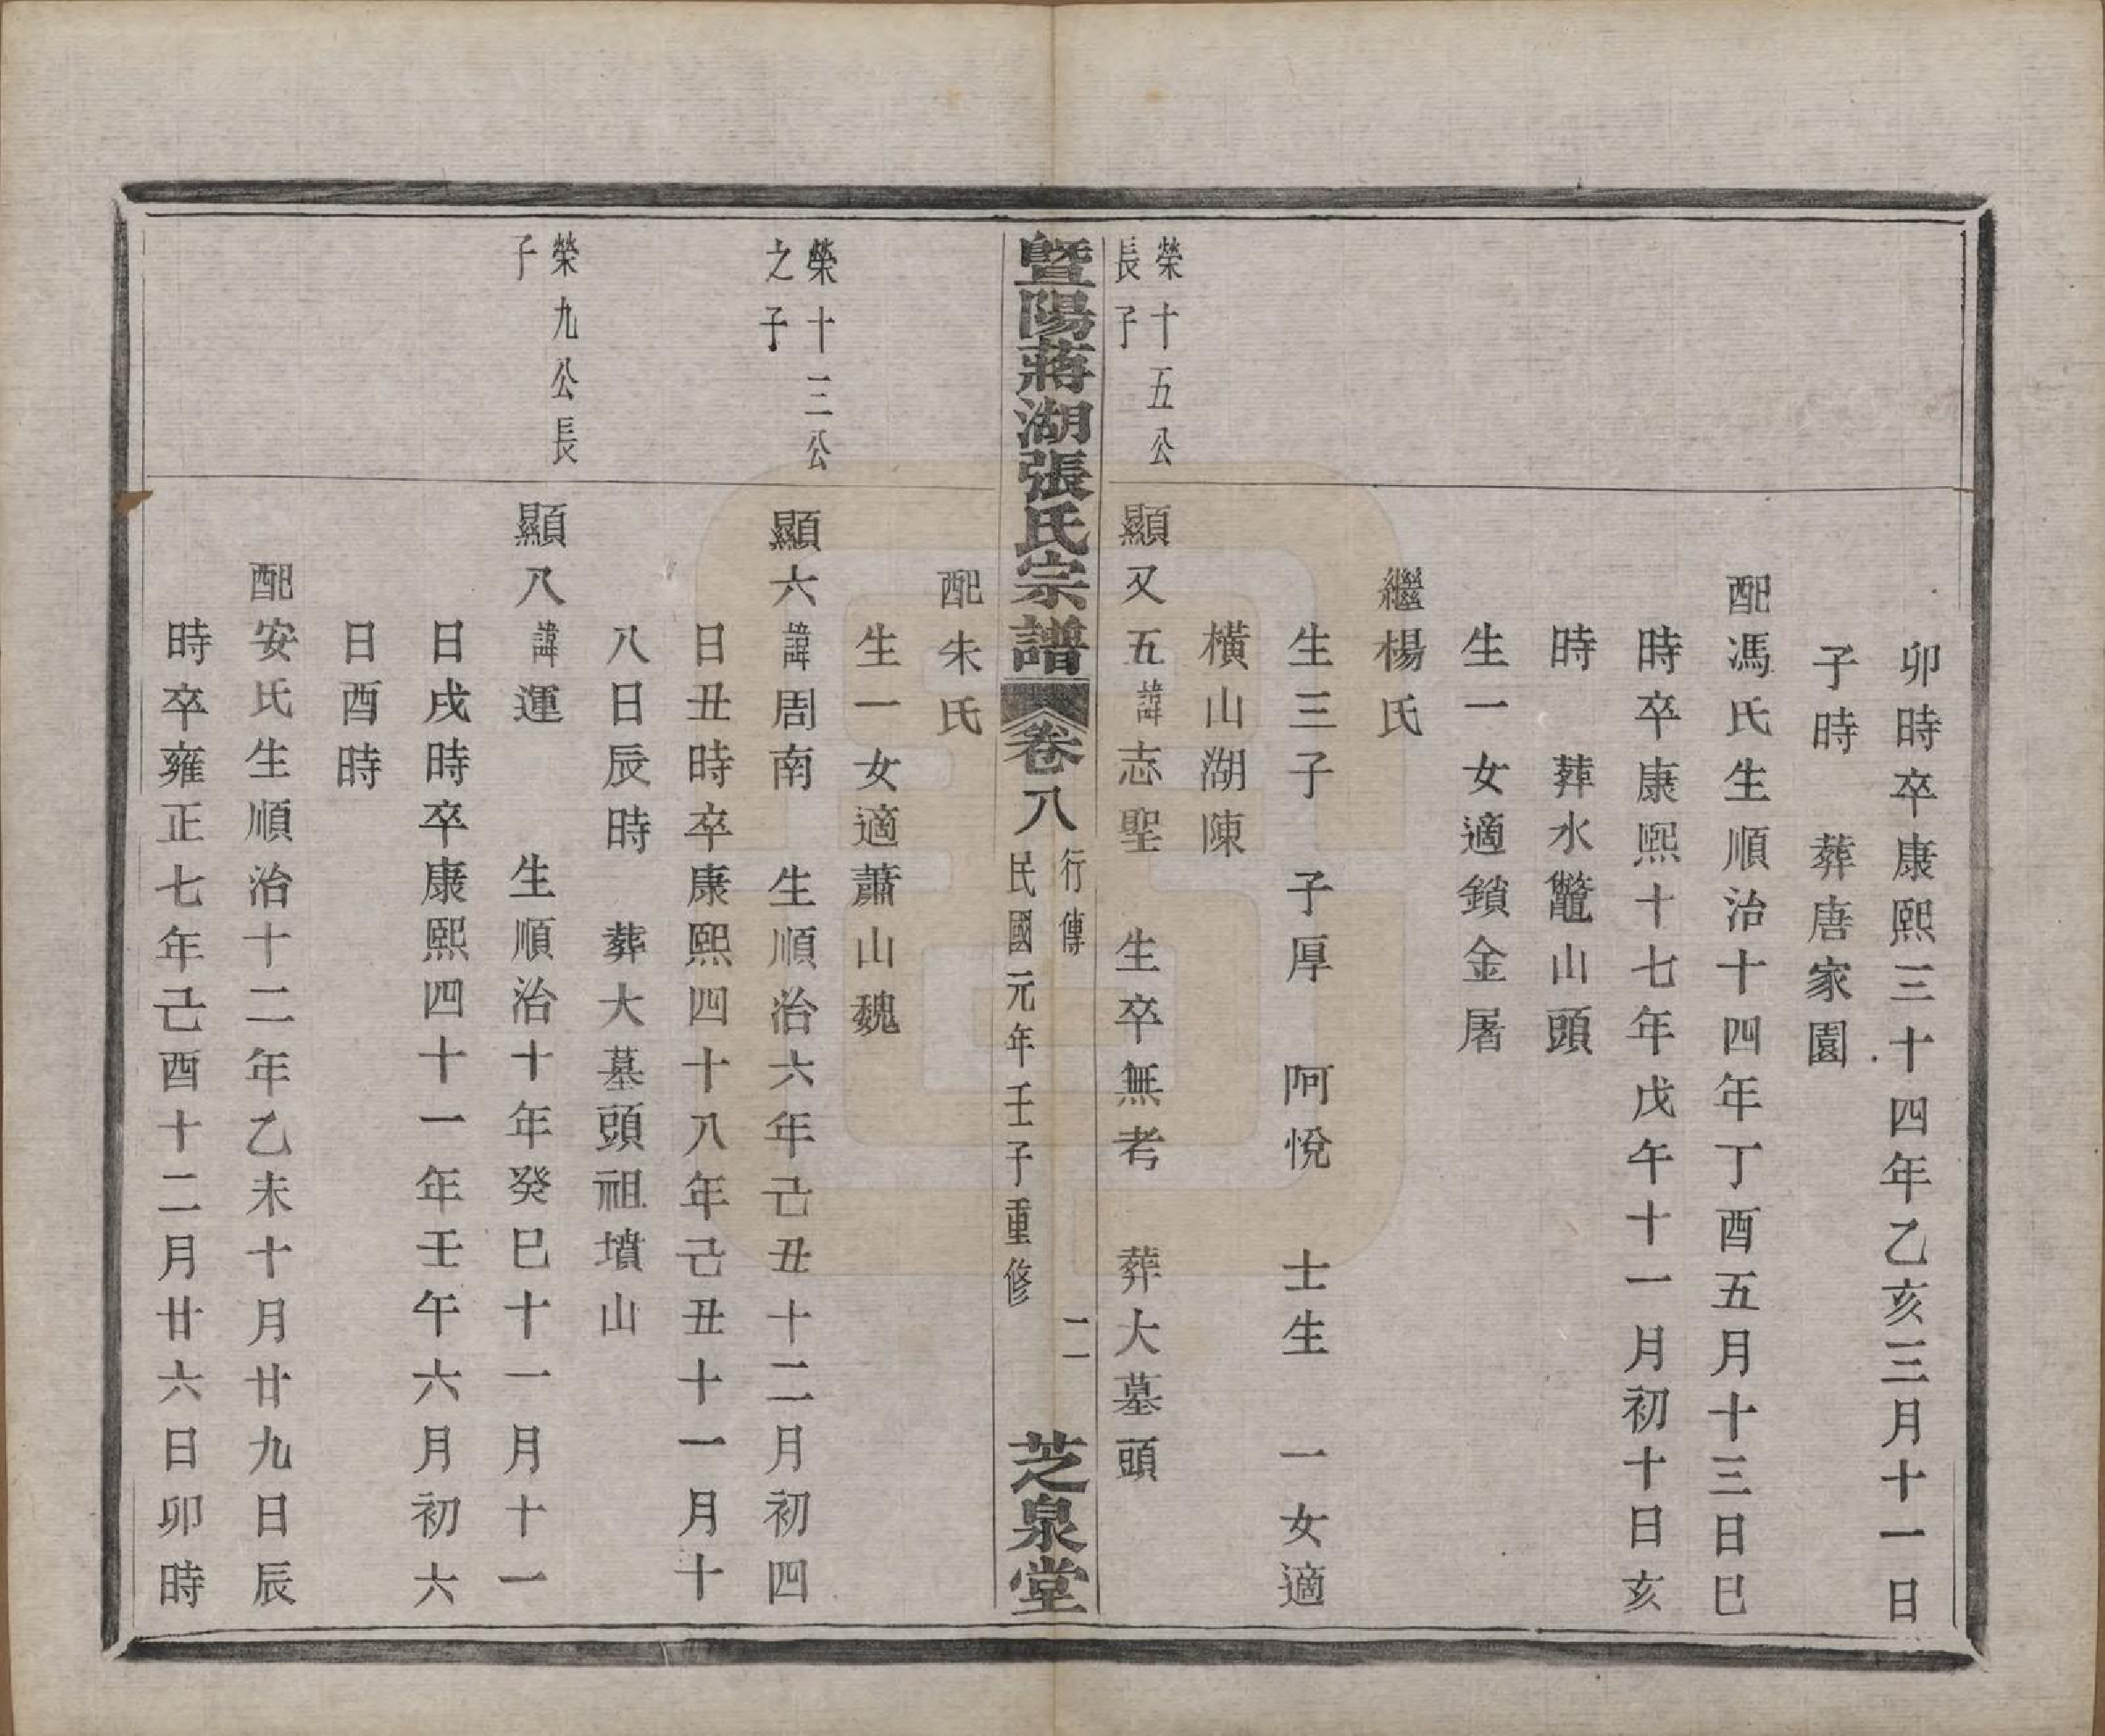 卯時卒康熙三十四年乙亥三月十一日
子時　葬唐家園
配馮氏生順治十四年丁酉五月十三日巳
時卒康熙十七年戊午十一月初十日亥
時　葬水鼈山頭
生一女適鎖金屠
繼楊氏
生三子　子厚　阿悅　士生　一女適
橫山湖陳
榮十五公
長子
顯又五諱志聖　生卒無考　葬大墓頭
暨陽蔣湖張氏宗譜　卷八　行傳　民國元年壬子重修　二　芝泉堂
配朱氏
生一女適蕭山魏
榮十三公
之子
顯六諱周南　生順治六年己丑十二月初四
日丑時卒康熙四十八年己丑十一月十
八日辰時　葬大墓頭祖墳山
榮九公長
子
顯八諱運　生順治十年癸巳十一月十一
日戌時卒康熙四十一年壬午六月初六
日酉時
配安氏生順治十二年乙未十月廿九日辰
時卒雍正七年己酉十二月廿六日卯時